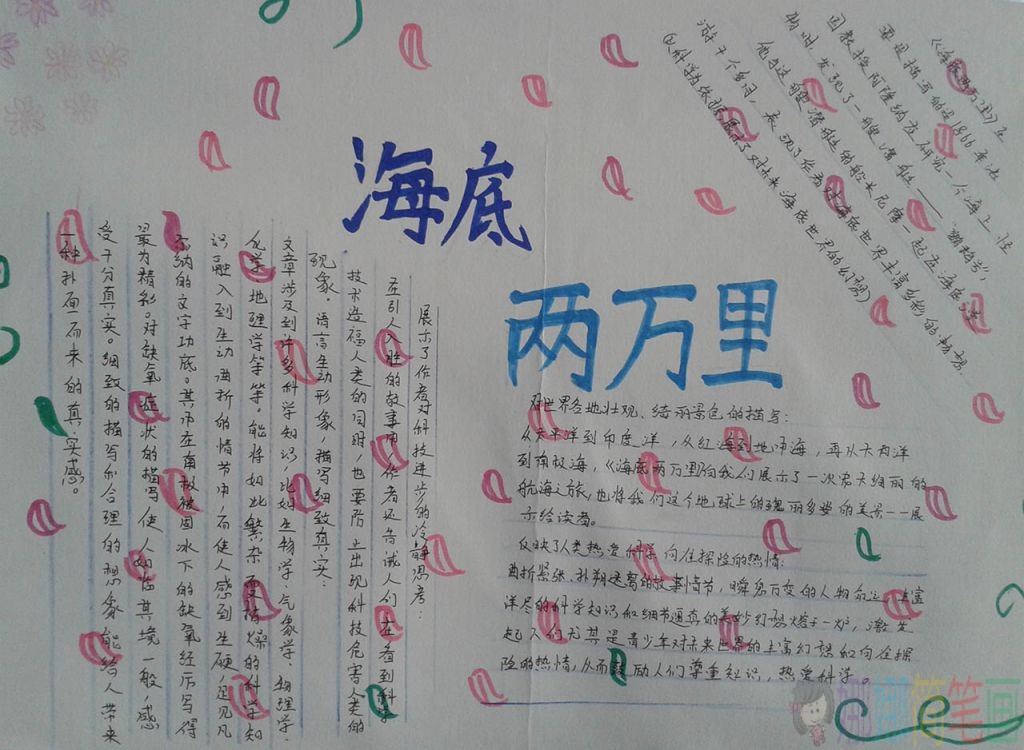 海底
两万里
《海底两万里》主
要是描写的是1866年法
国教授阿隆纳在研究一个海上怪
物时,发现了一艘潜艇——鹦鹉螺号,
他与这艘潜艇的船长尼摩一起在海底
游了个多月,表现了作者对海底世界丰富多彩的
以科学为依据展示了对未来海底世界的幻想)
展示了作者对科技进步的冷静思考:
在引人入胜的故事中,作者还告诫人们,在看到科学
技术造福人类的同时,也要防止出现科技危害人类的
现象。语言生动形象,描写细致真实:
文章涉及到许多科学知识,比如生物学、气象学、物理学、
化学、地理学等等。能将如此繁杂而枯燥的科学知
识融入到生动曲折的情节中,而使人感到生硬,足见凡
尔纳的文字功底。其中在南极被困冰下的缺氧经历写得
最为精彩。对缺氧症状的描写,使人如临其境一般,感
受十分真实。细致的描写和合理的想象能给人带来
一种扑面而来的真实感。
对世界各地壮观、绮丽景色的描写:
从太平洋到印度洋,从红海到地中海,再从大西洋
到南极海,《海底两万里》向我们展示了一次宏大绚丽的
航海之旅,也将我们这个地球上的瑰丽多姿的美景——展
示给读者。
反映了人类热爱科学向往探险的热情:
曲折紧张、扑朔迷离的故事情节,瞬息万变的人物命运,丰富
详尽的科学知识和细节逼真的美妙幻想熔于一炉,激发
起人们尤其是青少年对未来世界的丰富幻想和向往探
险的热情,从而鼓励人们尊重知识,热爱科学。
简笔画